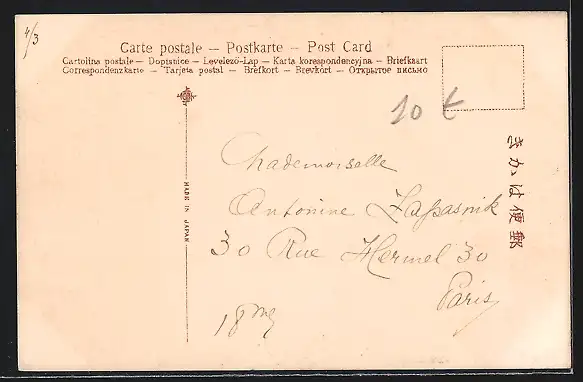 4/3
Carte postale – Postkarte – Post Card
Cartolina postale – Dopisnice – Levelező-Lap – Karta korespondencyjna – Briefkaart
Correspondenzkarte – Tarjeta postal – Brefkort – Brevkort – Открытое письмо
10 €
きかは便郵
MADE IN JAPAN
Mademoiselle
Antonine Zapasnik
30 Rue Hermel 30
Paris
18me